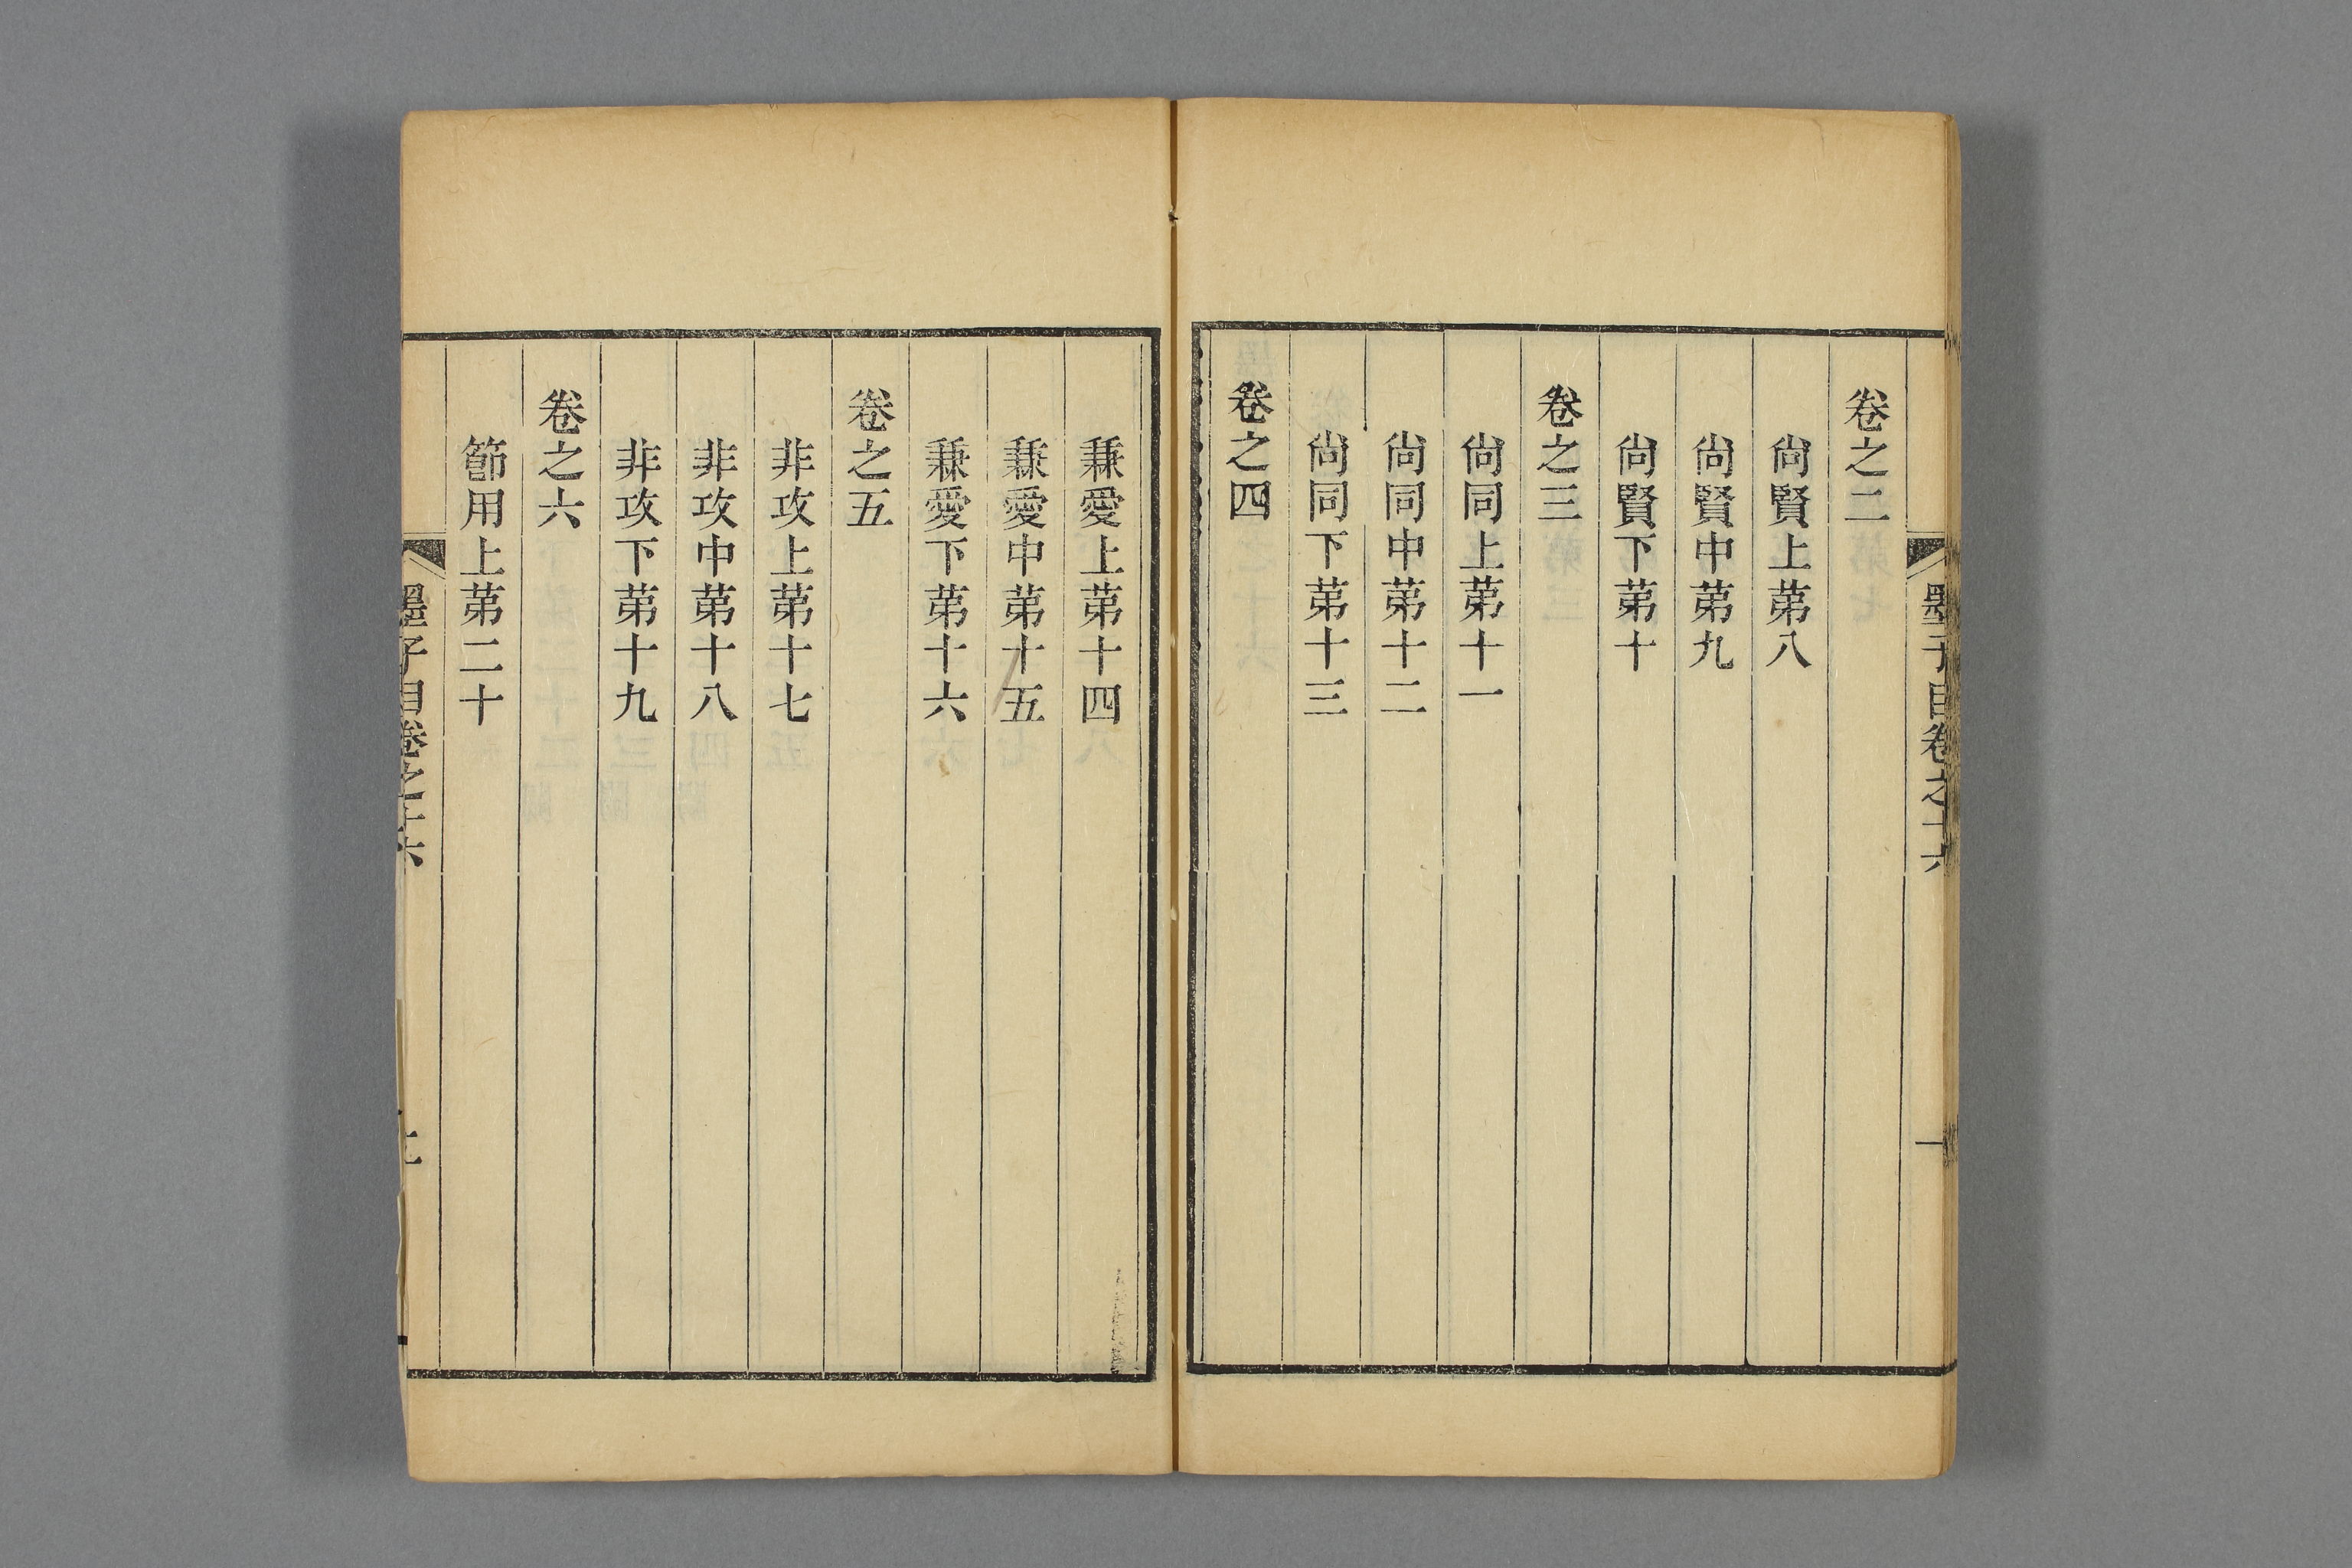 墨子目卷之十六
一
卷之二
尙賢上苐八
尙賢中苐九
尙賢下苐十
卷之三
尙同上苐十一
尙同中苐十二
尙同下苐十三
卷之四
兼愛上苐十四
兼愛中苐十五
兼愛下苐十六
卷之五
非攻上苐十七
非攻中苐十八
非攻下苐十九
卷之六
節用上苐二十
墨子目卷之十六
二